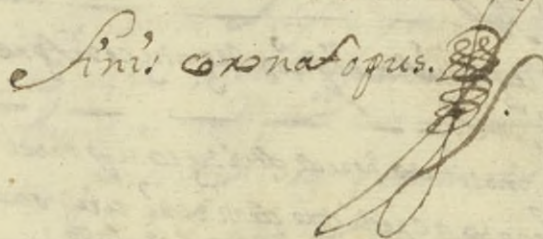 Finis coronat opus.